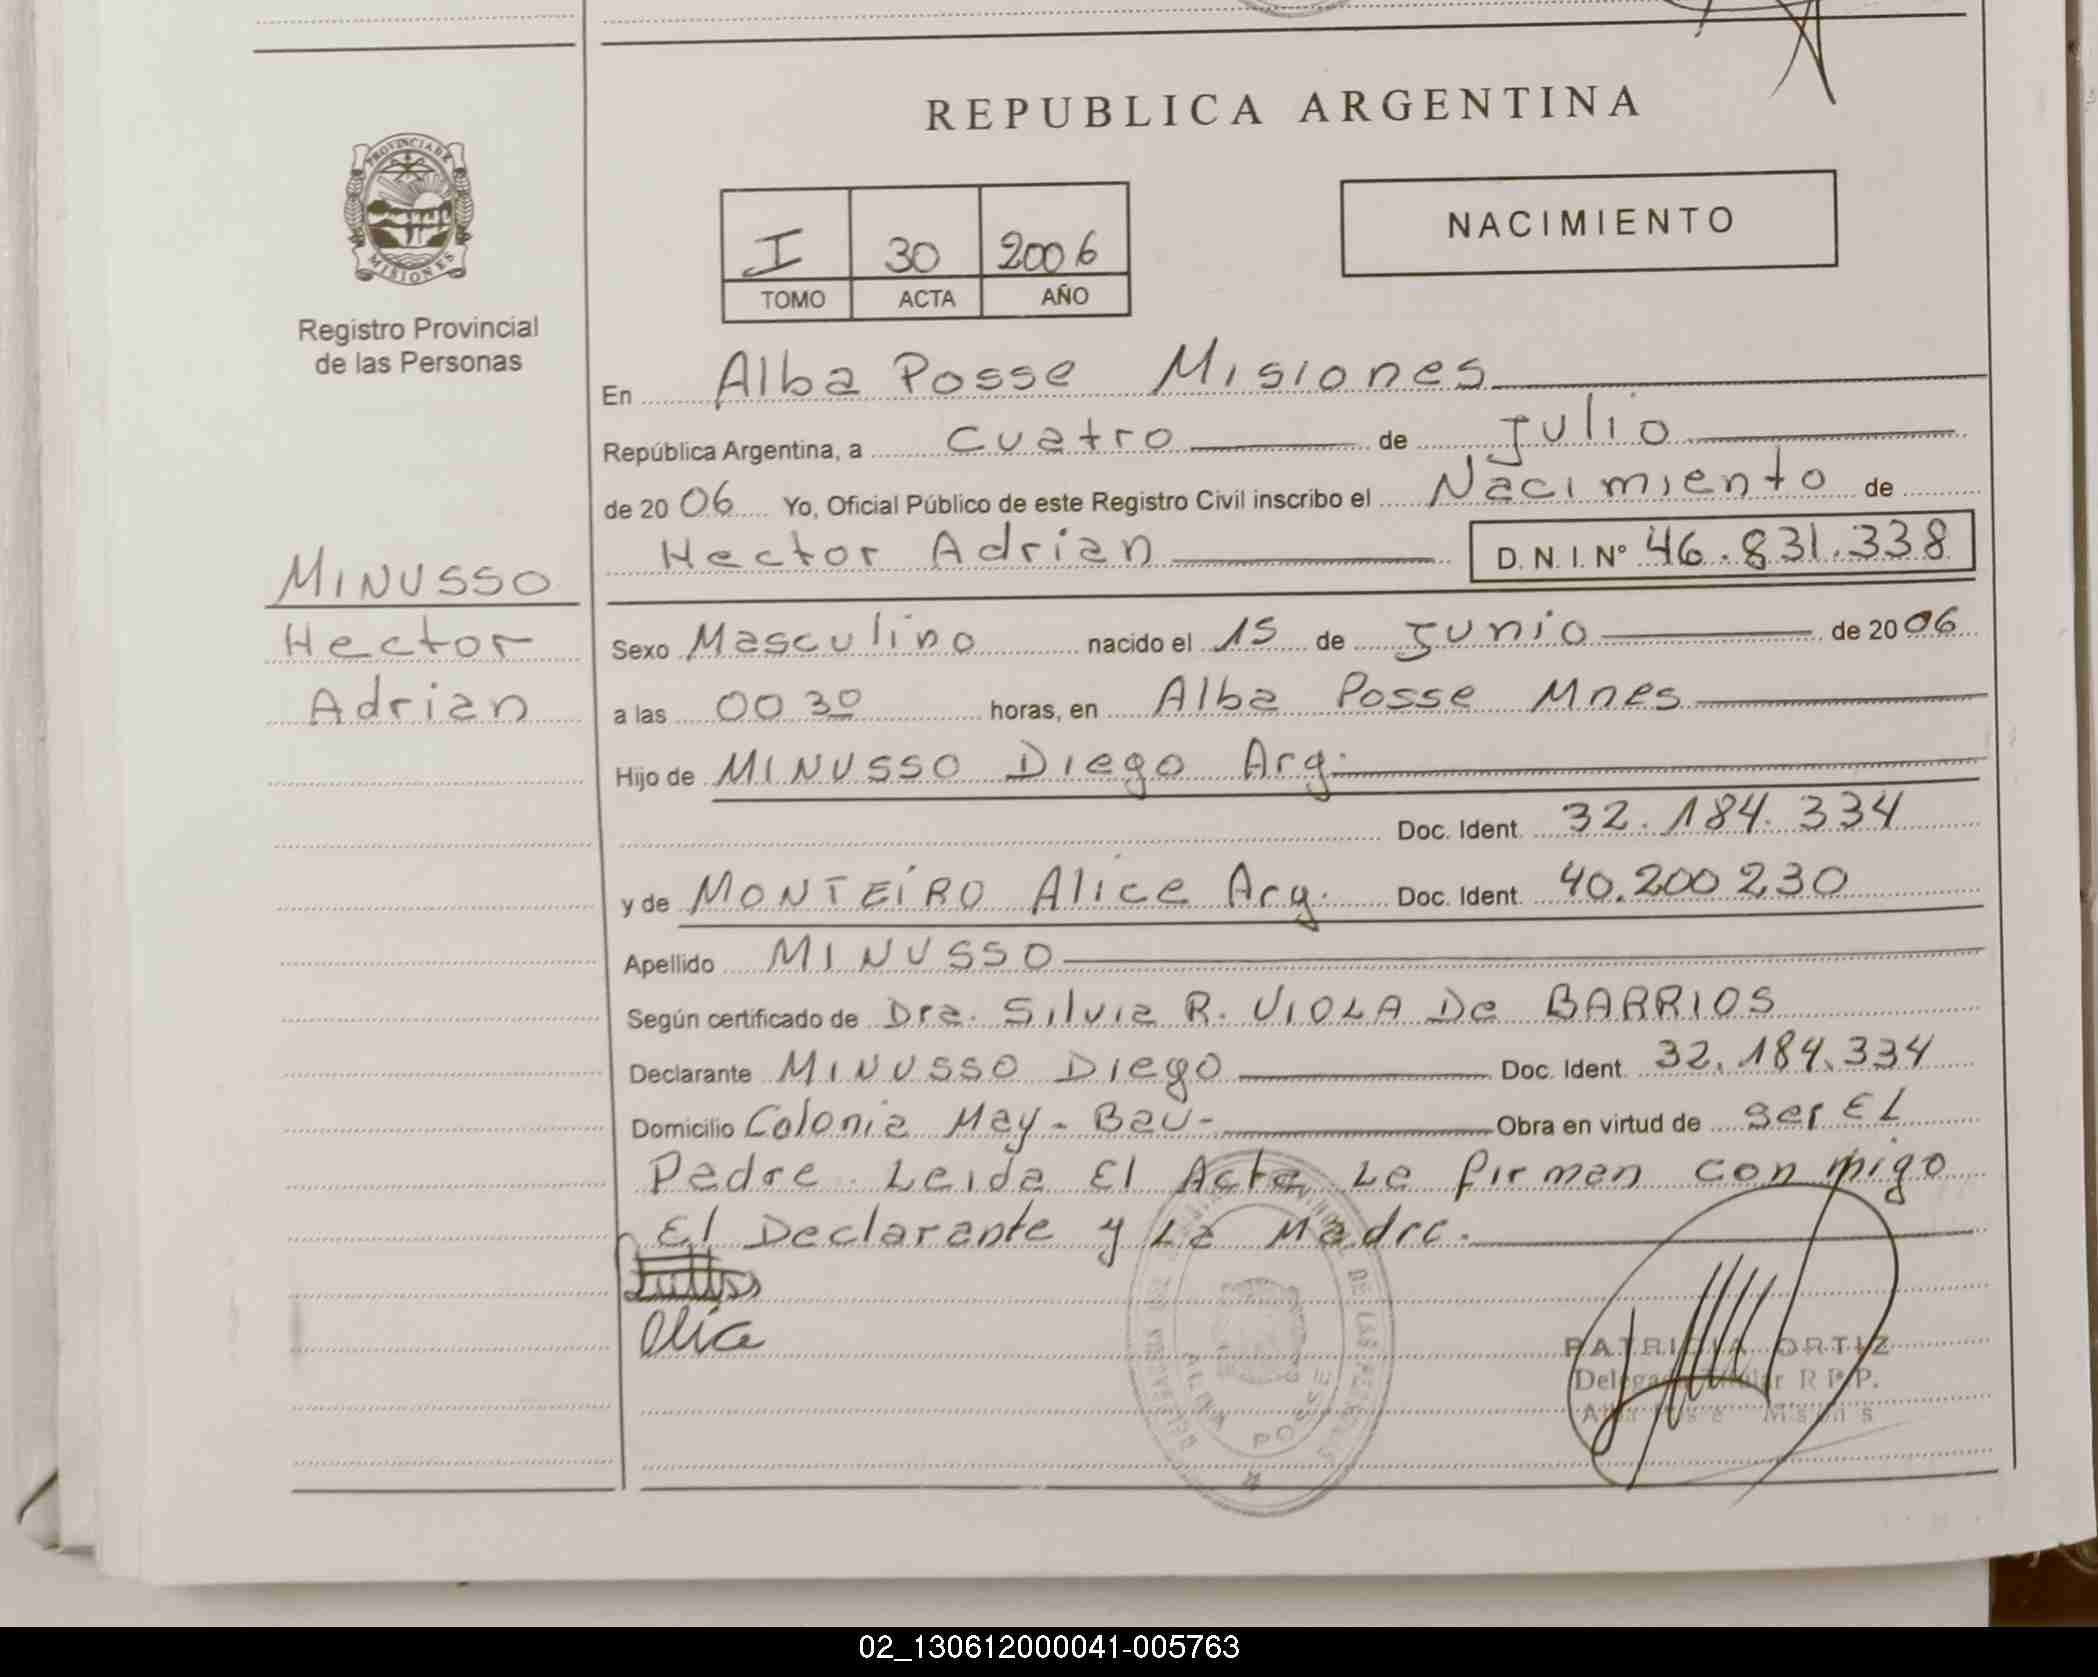 REPUBLICA ARGENTINA
PROVINCIA DE MISIONES
Registro Provincial
de las Personas
I 30 2006
TOMO ACTA AÑO
NACIMIENTO
En Alba Posse Misiones
República Argentina, a cuatro de Julio
de 2006 Yo, Oficial Público de este Registro Civil inscribo el Nacimiento de
Hector Adrian D. N. I. Nº 46.831.338
MINUSSO
Hector
Adrian
Sexo Masculino nacido el 15 de Junio de 2006
a las 00 30 horas, en Alba Posse Mnes
Hijo de MINUSSO Diego Arg.
Doc. Ident. 32.184.334
y de MONTEIRO Alice Arg. Doc. Ident. 40.200230
Apellido MINUSSO
Según certificado de Dra. Silvia R. VIOLA De BARRIOS
Declarante MINUSSO Diego Doc. Ident. 32.184.334
Domicilio Colonia May-Bau- Obra en virtud de ser EL
Padre. Leida El Acta La firman con migo
El Declarante y La Madre.
Alice
ALBA POSSE
PATRICIA ORTIZ
Delegada Titular R.P.P.
Alba Posse Misiones
02_130612000041-005763